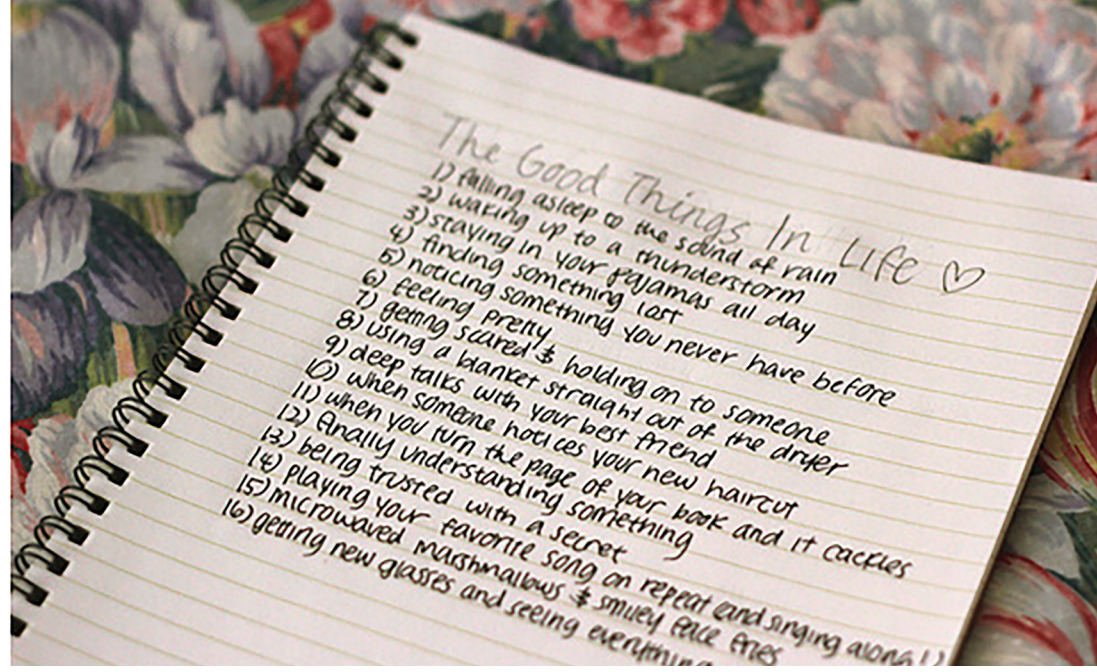 The Good Things In Life ♡
1) falling asleep to the sound of rain
2) waking up to a thunderstorm
3) staying in your pajamas all day
4) finding something lost
5) noticing something you never have before
6) feeling pretty
7) getting scared & holding on to someone
8) using a blanket straight out of the dryer
9) deep talks with your best friend
10) when someone notices your new haircut
11) when you turn the page of your book and it cackles
12) finally understanding something
13) being trusted with a secret
14) playing your favorite song on repeat (and singing along!)
15) microwaved marshmallows & smiley face fries
16) getting new glasses and seeing everything